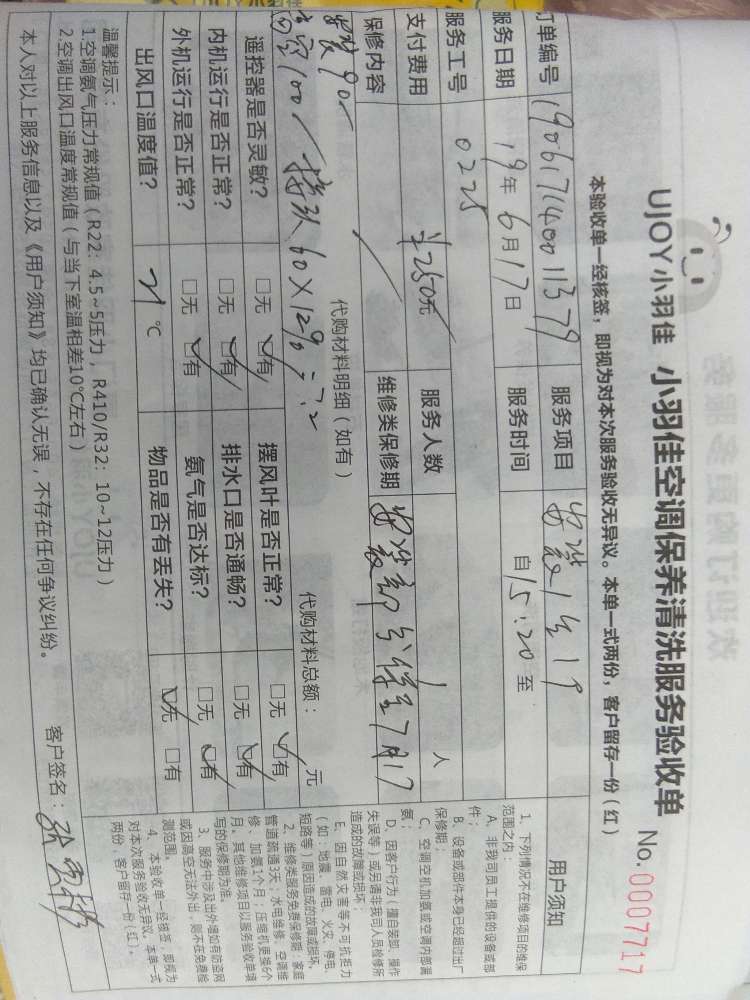 UJOY小羽佳 小羽佳空调保养清洗服务验收单 No.0007717
本验收单一经核签，即视为对本次服务验收无异议。本单一式两份，客户留存一份（红）
订单编号 19061714001379 服务项目
服务日期 19年6月17日 服务时间 自15:20至
服务工号 0225
支付费用 ¥250元 服务人数 1人
保修内容 维修类保修期
代购材料明细（如有）
安装90
高空100 接水60×1.2%=72
代购材料总额： 元
遥控器是否灵敏？ □无 □有 摆风叶是否正常？ □无 □有
内机运行是否正常？ □无 □有 排水口是否通畅？ □无 □有
外机运行是否正常？ □无 □有 氨气是否达标？ □无 □有
出风口温度值？ 21℃ 物品是否有丢失？ □无 □有
温馨提示：
1.空调氨气压力常规值（R22：4.5~5压力，R410/R32：10~12压力）
2.空调出风口温度常规值（与当下室温相差10℃左右）
本人对以上服务信息以及《用户须知》均已确认无误，不存在任何争议纠纷。 客户签名：
用户须知
1、下列情况不在维修项目的维保
范围之内：
A、非我司员工提供的设备或部
件；
B、设备或部件本身已经超过出厂
保修期；
C、空调空机加氨或空调内部漏
氨；
D、因客户行为（擅自装卸、操作
失误等）或另请非我司人员检修所
造成的故障或损坏；
E、因自然灾害等不可抗拒力
（如：地震、雷电、火灾、停电、
短路等）原因造成的故障或损坏。
2、维修类服务免费保修期：家庭
管道疏通3天；水电维修、空调维
修、加氨1个月；压缩机更换6个
月。其他维修项目以服务验收单填
写的保修期为准。
3、服务中涉及出外墙如有防盗网
或因高空无法外出，则不在免费检
测范围。
4、本验收单一经核签，即视为
对本次服务验收无异议。本单一式
两份，客户留存一份（红）。